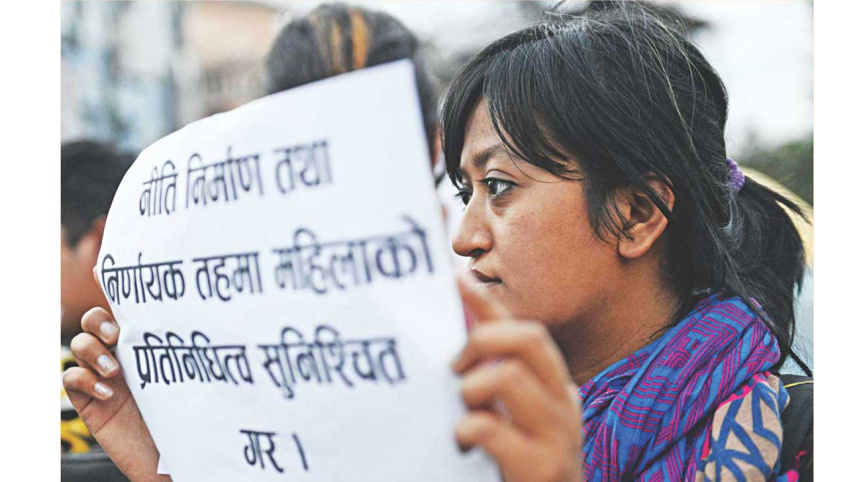 नीति निर्माण तथा
निर्णायक तहमा महिलाको
प्रतिनिधित्व सुनिश्चित
गर ।